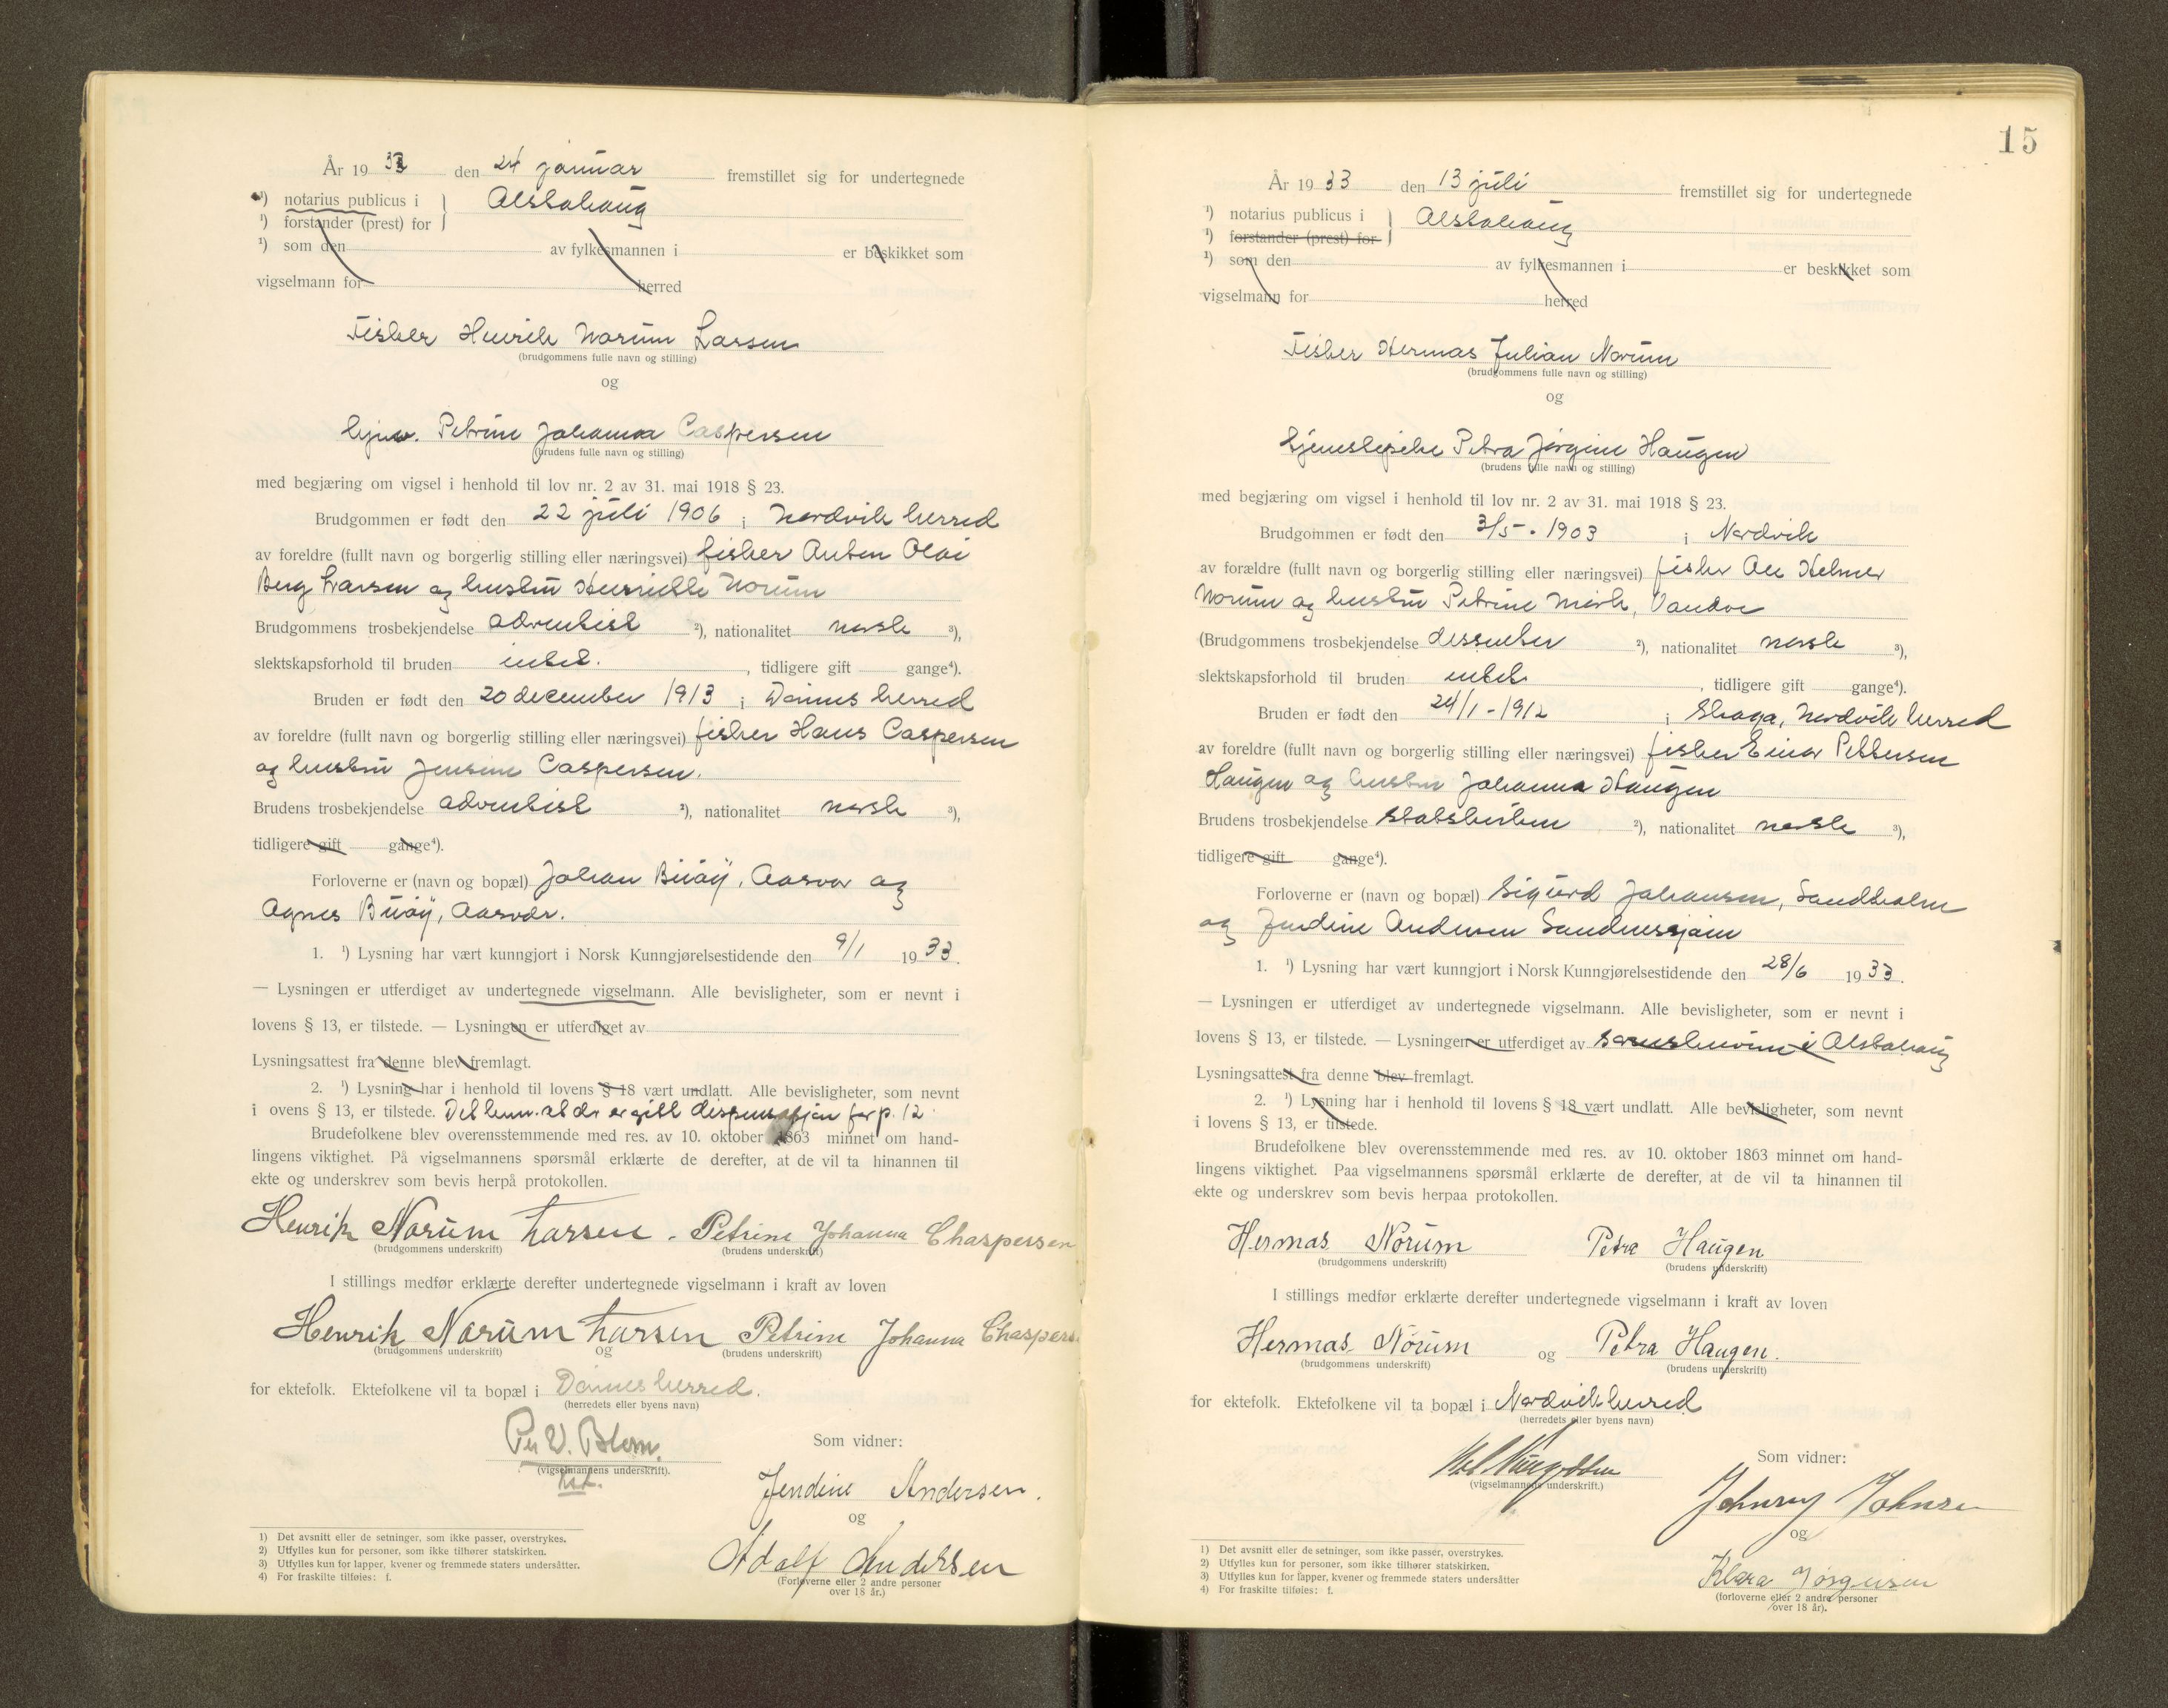 År 19 33 den 24 januar fremstillet sig for undertegnede
¹) notarius publicus i Alstahaug
¹) forstander (prest) for
¹) som den av fylkesmannen i er beskikket som
vigselmann for herred
Fisker Henrik Norum Larsen
(brudgommens fulle navn og stilling)
og
Petrine Johanna Caspersen
(brudens fulle navn og stilling)
med begjæring om vigsel i henhold til lov nr. 2 av 31. mai 1918 § 23.
Brudgommen er født den 22 juli 1906 i Nordvik herred
av foreldre (fullt navn og borgerlig stilling eller næringsvei) fisker Anton Olai
Berg Larsen og hustru Henrikke Norum
Brudgommens trosbekjendelse adventist ²), nationalitet norsk ³),
slektskapsforhold til bruden intet. , tidligere gift gange⁴).
Bruden er født den 20 december 1913 i Dønnes herred
av foreldre (fullt navn og borgerlig stilling eller næringsvei) fisker Hans Caspersen
og hustru Jensine Caspersen.
Brudens trosbekjendelse adventist ²), nationalitet norsk ³),
tidligere gift gange⁴).
Forloverne er (navn og bopæl) Johan Buøy, Aasvær og
Agnes Buøy, Aasvær.
1. ¹) Lysning har vært kunngjort i Norsk Kunngjørelsestidende den 9/1 1933.
— Lysningen er utferdiget av undertegnede vigselmann. Alle bevisligheter, som er nevnt i
lovens § 13, er tilstede. — Lysningen er utferdiget av
Lysningsattest fra denne blev fremlagt.
2. ¹) Lysning har i henhold til lovens § 18 vært undlatt. Alle bevisligheter, som nevnt
i ovens § 13, er tilstede. Det bem. at der er gitt dispensasjon for p. 12
Brudefolkene blev overensstemmende med res. av 10. oktober 1863 minnet om hand-
lingens viktighet. På vigselmannens spørsmål erklærte de derefter, at de vil ta hinannen til
ekte og underskrev som bevis herpå protokollen.
Henrik Norum Larsen. Petrine Johanna Chaspersen
(brudgommens underskrift) (brudens underskrift)
I stillings medfør erklærte derefter undertegnede vigselmann i kraft av loven
Henrik Norum Larsen Petrine Johanna Chaspers
(brudgommens underskrift) og (brudens underskrift)
for ektefolk. Ektefolkene vil ta bopæl i Dønnes herred.
(herredets eller byens navn)
Per V. Blom.
(vigselmannens underskrift).
Som vidner:
Jendine Andersen.
og
Adolf Andersen
(Forloverne eller 2 andre personer
over 18 år.)
1) Det avsnitt eller de setninger, som ikke passer, overstrykes.
2) Utfylles kun for personer, som ikke tilhører statskirken.
3) Utfylles kun for lapper, kvener og fremmede staters undersåtter.
4) For fraskilte tilføies: f.
15
År 19 33 den 13 juli fremstillet sig for undertegnede
¹) notarius publicus i Alstahaug
¹) forstander (prest) for
¹) som den av fylkesmannen i er beskikket som
vigselmann for herred
Fisker Hermas Julian Norum
(brudgommens fulle navn og stilling)
og
tjenestepike Petra Jørgine Haugen
(brudens fulle navn og stilling)
med begjæring om vigsel i henhold til lov nr. 2 av 31. mai 1918 § 23.
Brudgommen er født den 3/5-1903 i Nordvik
av forældre (fullt navn og borgerlig stilling eller næringsvei) fisker Ole Helmer
Norum og hustru Petrine Mork, Vandve
(Brudgommens trosbekjendelse dissenter ²), nationalitet norsk ³),
slektskapsforhold til bruden intet , tidligere gift gange⁴).
Bruden er født den 24/1-1912 i Skaga, Nordvik herred
av foreldre (fullt navn og borgerlig stilling eller næringsvei) fisker Einar Pettersen
Haugen og hustru Johanna Haugen
Brudens trosbekjendelse statskirken ²), nationalitet norsk ³),
tidligere gift gange⁴).
Forloverne er (navn og bopæl) Sigurd Johansen, Sandtholm
og Jendine Andersen Sandnessjøen
1. ¹) Lysning har vært kunngjort i Norsk Kunngjørelsestidende den 28/6 1933.
— Lysningen er utferdiget av undertegnede vigselmann. Alle bevisligheter, som er nevnt i
lovens § 13, er tilstede. — Lysningen er utferdiget av sorenskriveren i Alstahaug
Lysningsattest fra denne blev fremlagt.
2. ¹) Lysning har i henhold til lovens § 18 vært undlatt. Alle bevisligheter, som nevnt
i lovens § 13, er tilstede.
Brudefolkene blev overensstemmende med res. av 10. oktober 1863 minnet om hand-
lingens viktighet. Paa vigselmannens spørsmål erklærte de derefter, at de vil ta hinannen til
ekte og underskrev som bevis herpaa protokollen.
Hermas Norum Petra Haugen
(brudgommens underskrift) (brudens underskrift)
I stillings medfør erklærte derefter undertegnede vigselmann i kraft av loven
Hermas Norum og Petra Haugen.
(brudgommens underskrift) (brudens underskrift)
for ektefolk. Ektefolkene vil ta bopæl i Nordvik herred
(herredets eller byens navn)
(vigselmannens underskrift.)
Som vidner:
Johnny Johnsen
og
Klara Jørgensen
(forloverne eller 2 andre personer
over 18 år).
1) Det avsnitt eller de setninger, som ikke passer, overstrykes.
2) Utfylles kun for personer, som ikke tilhører statskirken.
3) Utfylles kun for lapper, kvener og fremmede staters undersåtter
4) For fraskilte tilføies: f.